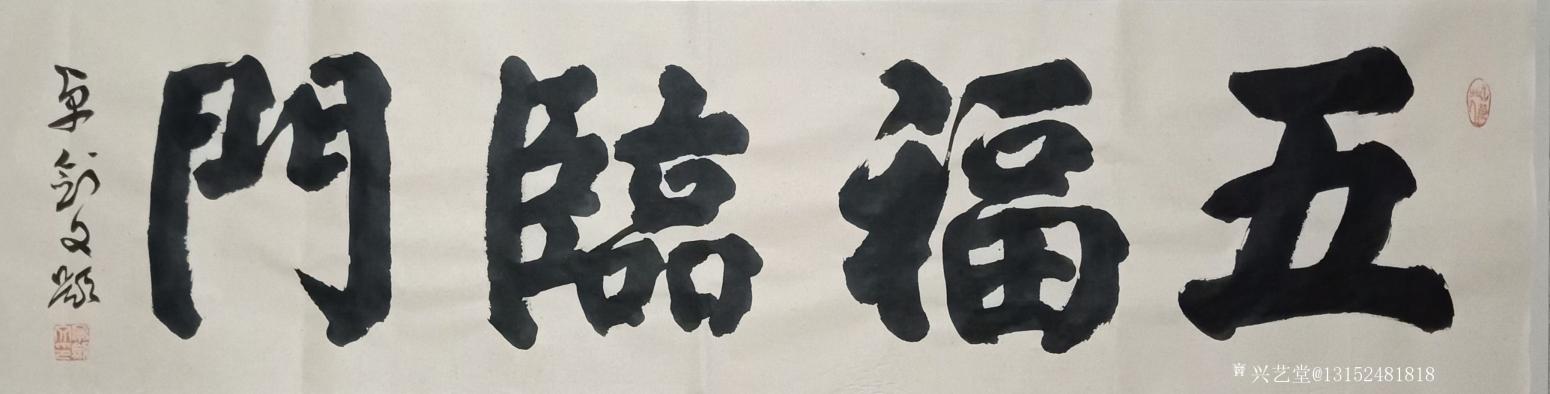 五福臨門
卓剑文题
兴艺堂@13152481818